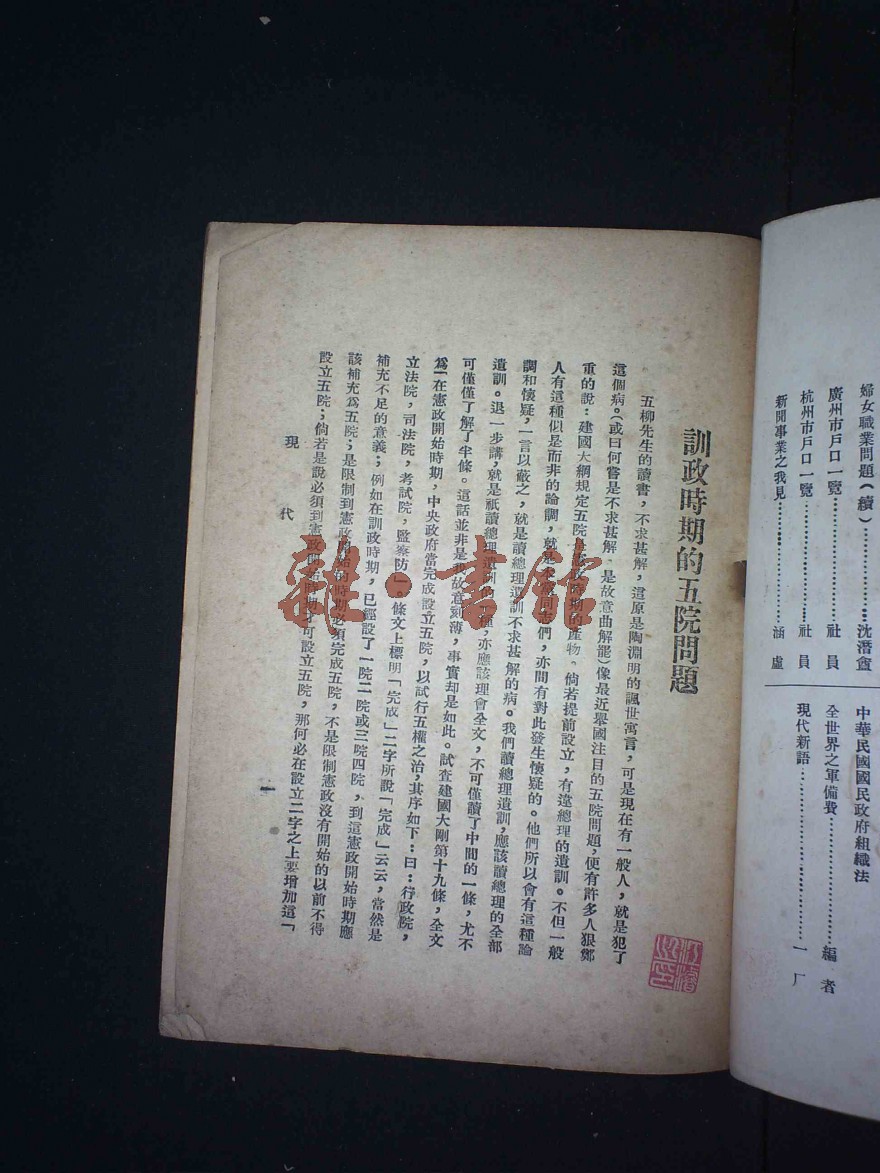 婦女職業問題(續)…………沈潛盦
廣州市戶口一覽…………社員
杭州市戶口一覽…………社員
新聞事業之我見…………涵虛
中華民國國民政府組織法
全世界之軍備費…………編者
現代新語…………一厂
訓政時期的五院問題
五柳先生的讀書,不求甚解,這原是陶淵明的諷世寓言,可是現在有一般人,就是犯了
這個病。(或曰何嘗是不求甚解 是故意曲解罷)像最近舉國注目的五院問題,便有許多人狠鄭
重的說:建國大綱規定五院是憲政時期的產物。倘若提前設立,有違總理的遺訓。不但一般
人有這種似是而非的論調,就是本黨同志們,亦間有對此發生懷疑的。他們所以會有這種論
調和懷疑,一言以蔽之,就是讀總理遺訓不求甚解的病。我們讀總理遺訓,應該讀總理的全部
遺訓。退一步講,就是祇讀總理遺訓的一種,亦應該理會全文,不可僅讀了中間的一條,尤不
可僅僅了解了半條。這話並非是我故意刻薄,事實却是如此。試查建國大剛第十九條,全文
爲「在憲政開始時期,中央政府當完成設立五院,以試行五權之治,其序如下:曰:行政院,
立法院,司法院,考試院,監察防」。條文上標明「完成」二字所說「完成」云云,當然是
補充不足的意義;例如在訓政時期,已經設了一院二院或三院四院,到這憲政開始時期應
該補充爲五院;是限制到憲政開始的時期必須完成五院,不是限制憲政沒有開始的以前不得
設立五院;倘若是說必須到憲政開始時期才可設立五院,那何必在設立二字之上要增加這「
現代
一
雜·書館